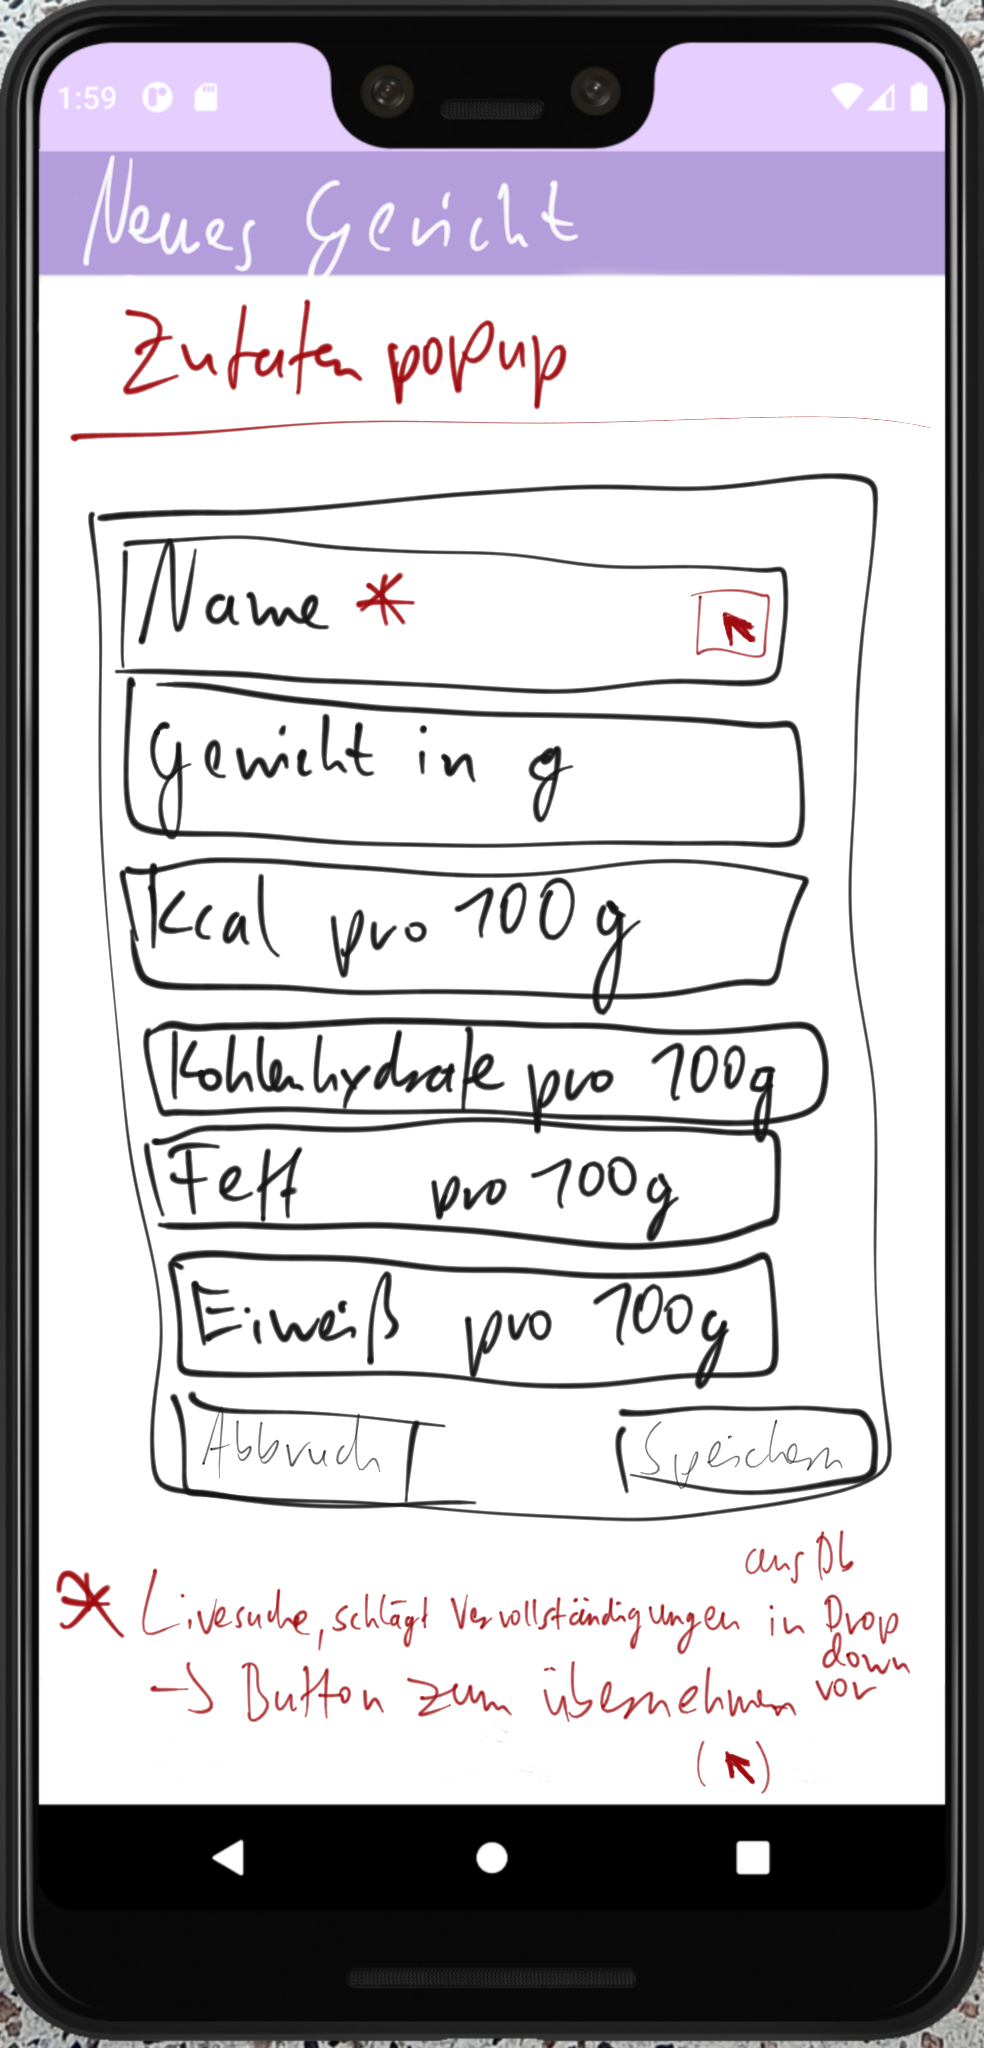 1:59
Neues Gericht
Zutaten popup
Name *
Gewicht in g
Kcal pro 100g
Kohlenhydrate pro 100g
Fett pro 100g
Eiweiß pro 100g
Abbruch
Speichern
aus Db
* Livesuche, schlägt Vervollständigungen in Drop
down
vor
→ Button zum übernehmen
(↖)